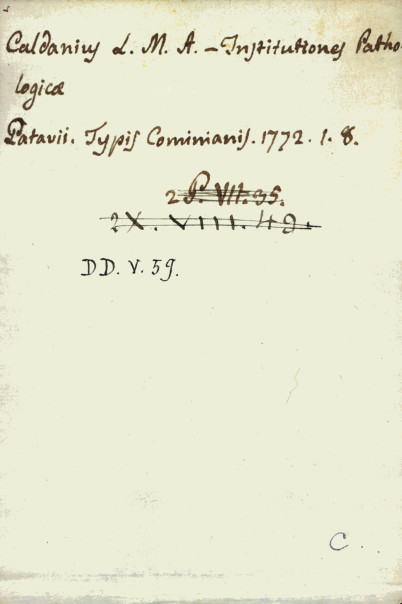 Caldanius L. M. A. – Institutiones Patho-
logicæ
Patavii. Typis Cominianis. 1772. 1. 8.
2 P. VII. 35.
2 X. VIII. 49.
DD. V. 59.
C